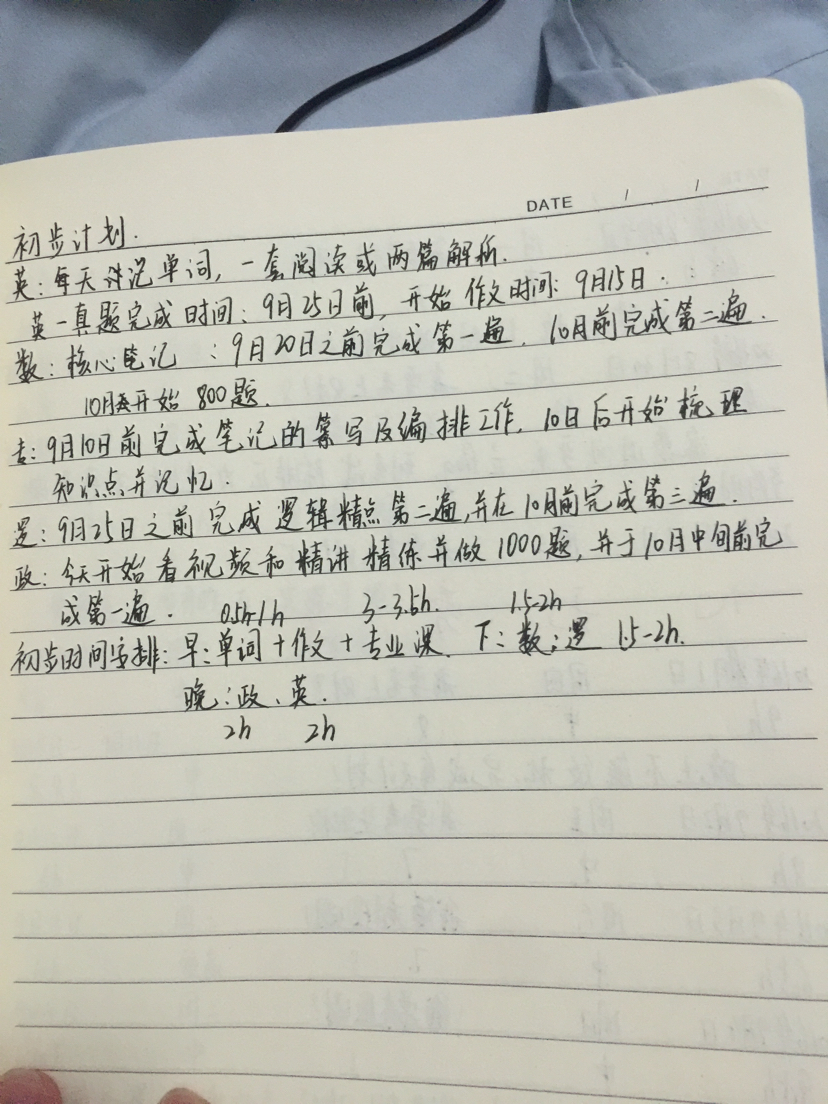 DATE / /
初步计划.
英:每天背记单词,一套阅读或两篇解析.
英一真题完成时间:9月25日前,开始作文时间:9月15日.
数:核心笔记:9月20日之前完成第一遍.10月前完成第二遍.
10月开始800题.
专:9月10日前完成笔记的纂写及编排工作.10日后开始梳理
知识点并记忆.
逻:9月25日之前完成逻辑精点第二遍,并在10月前完成第三遍.
政:今天开始看视频和精讲精练并做1000题,并于10月中旬前完
成第一遍. 0.5h-1h 3-3.5h. 1.5-2h
初步时间安排:早:单词+作文+专业课. 下:数;逻 1.5-2h.
晚:政、英.
2h 2h